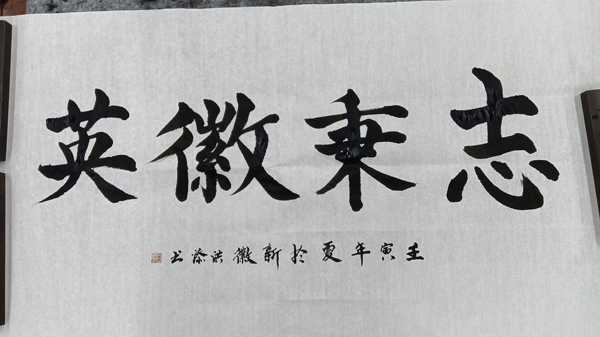 志秉徽英
壬寅年夏於新徽洪书